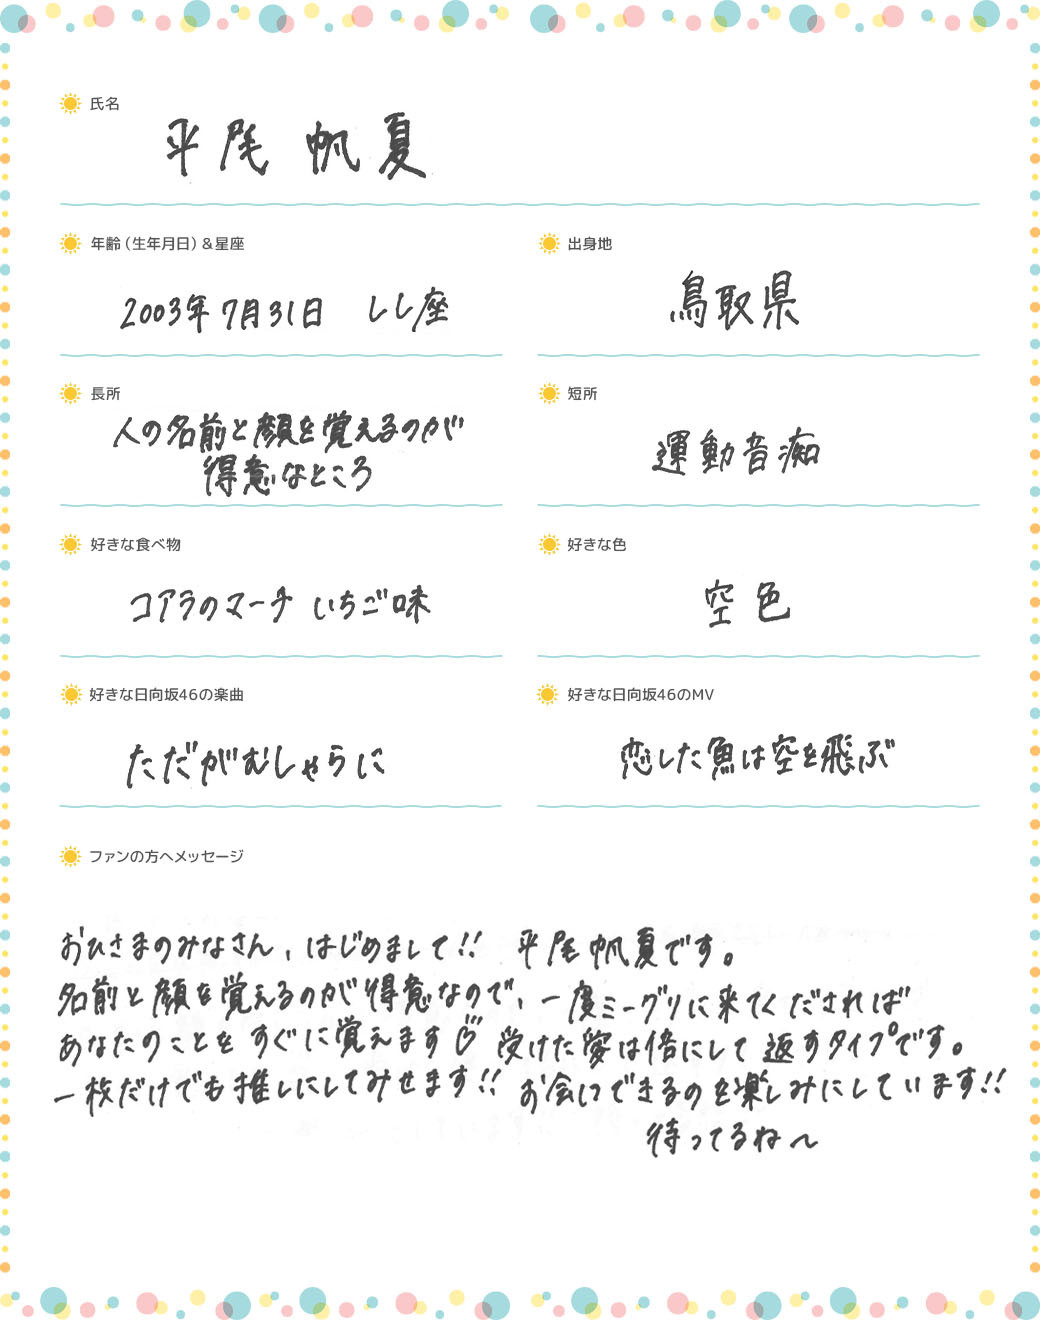 氏名
平尾 帆夏
年齢(生年月日)&星座
2003年7月31日 しし座
出身地
鳥取県
長所
人の名前と顔を覚えるのが
得意なところ
短所
運動音痴
好きな食べ物
コアラのマーチ いちご味
好きな色
空色
好きな日向坂46の楽曲
ただがむしゃらに
好きな日向坂46のMV
恋した魚は空を飛ぶ
ファンの方へメッセージ
おひさまのみなさん、はじめまして!! 平尾帆夏です。
名前と顔を覚えるのが得意なので、一度ミーグリに来てくだされば
あなたのことをすぐに覚えます♡ 受けた愛は倍にして返すタイプです。
一枚だけでも推しにしてみせます!! お会いできるのを楽しみにしています!!
待ってるね〜